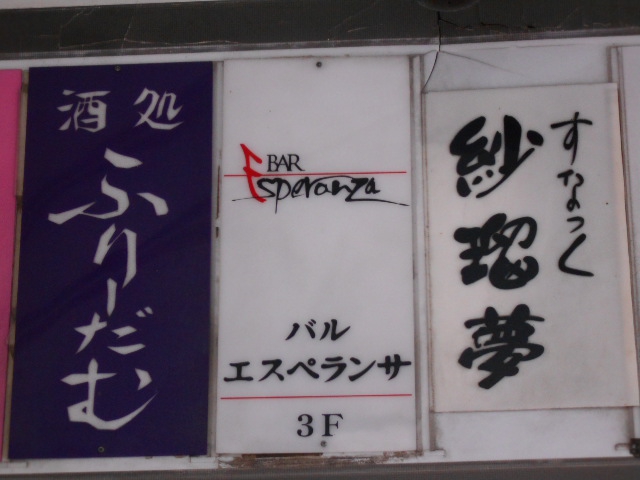 酒処
ふりーだむ
BAR
Esperanza
バル
エスペランサ
3F
すなっく
紗瑠夢